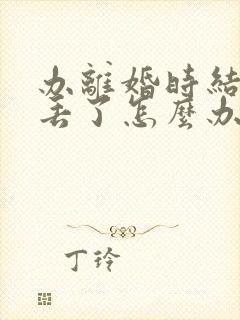 办離婚時結
丟了怎麼办
丁玲